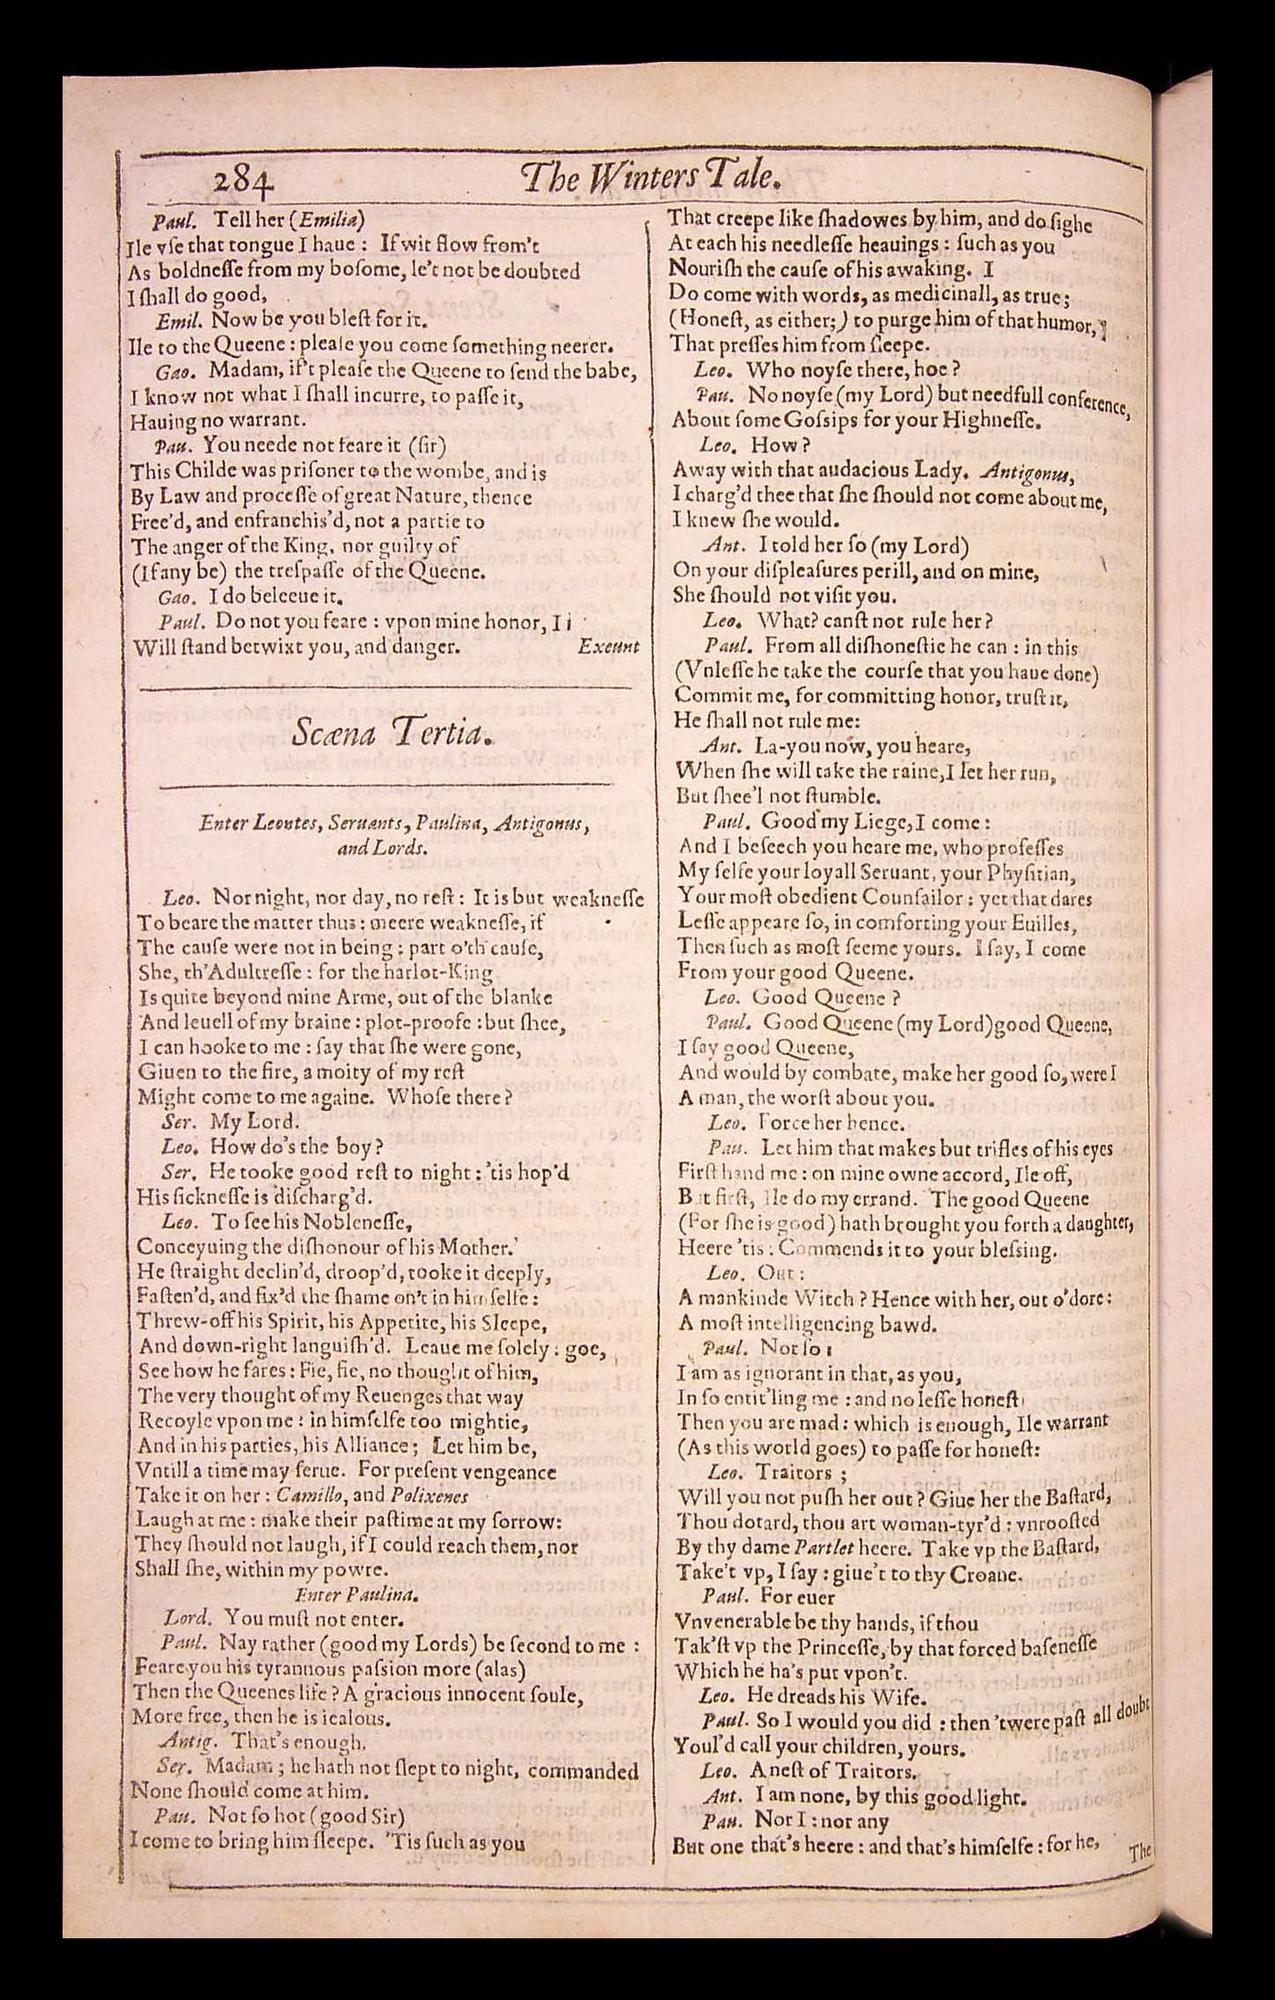 284
The Winters Tale.
Paul. Tell her (Emilia)
Ile vſe that tongue I haue : If wit flow from't
As boldneſſe from my boſome, le't not be doubted
I ſhall do good,
Emil. Now be you bleſt for it.
Ile to the Queene : pleaſe you come ſomething neerer.
Gao. Madam, if't pleaſe the Queene to ſend the babe,
I know not what I ſhall incurre, to paſſe it,
Hauing no warrant.
Pau. You neede not feare it (ſir)
This Childe was priſoner to the wombe, and is
By Law and proceſſe of great Nature, thence
Free'd, and enfranchis'd, not a partie to
The anger of the King, nor guilty of
(If any be) the treſpaſſe of the Queene.
Gao. I do beleeue it.
Paul. Do not you feare : vpon mine honor, I
Will ſtand betwixt you, and danger. Exeunt
Scæna Tertia.
Enter Leontes, Seruants, Paulina, Antigonus,
and Lords.
Leo. Nor night, nor day, no reſt : It is but weakneſſe
To beare the matter thus : meere weakneſſe, if
The cauſe were not in being : part o'th cauſe,
She, th'Adultreſſe : for the harlot-King
Is quite beyond mine Arme, out of the blanke
And leuell of my braine : plot-proofe : but ſhee,
I can hooke to me : ſay that ſhe were gone,
Giuen to the fire, a moity of my reſt
Might come to me againe. Whoſe there?
Ser. My Lord.
Leo. How do's the boy?
Ser. He tooke good reſt to night : 'tis hop'd
His ſickneſſe is diſcharg'd.
Leo. To ſee his Nobleneſſe,
Conceyuing the diſhonour of his Mother.
He ſtraight declin'd, droop'd, tooke it deeply,
Faſten'd, and fix'd the ſhame on't in himſelfe :
Threw-off his Spirit, his Appetite, his Sleepe,
And down-right languiſh'd. Leaue me ſolely : goe,
See how he fares : Fie, fie, no thought of him,
The very thought of my Reuenges that way
Recoyle vpon me : in himſelfe too mightie,
And in his parties, his Alliance; Let him be,
Vntill a time may ſerue. For preſent vengeance
Take it on her : Camillo, and Polixenes
Laugh at me : make their paſtime at my ſorrow:
They ſhould not laugh, if I could reach them, nor
Shall ſhe, within my powre.
Enter Paulina.
Lord. You muſt not enter.
Paul. Nay rather (good my Lords) be ſecond to me :
Feare you his tyrannous paſsion more (alas)
Then the Queenes life? A gracious innocent ſoule,
More free, then he is iealous.
Antig. That's enough.
Ser. Madam; he hath not ſlept to night, commanded
None ſhould come at him.
Pau. Not ſo hot (good Sir)
I come to bring him ſleepe. 'Tis ſuch as you
That creepe like ſhadowes by him, and do ſighe
At each his needleſſe heauings : ſuch as you
Nouriſh the cauſe of his awaking. I
Do come with words, as medicinall, as true;
(Honeſt, as either;) to purge him of that humor,
That preſſes him from ſleepe.
Leo. Who noyſe there, hoe?
Pau. No noyſe (my Lord) but needfull conference,
About ſome Goſsips for your Highneſſe.
Leo. How?
Away with that audacious Lady. Antigonus,
I charg'd thee that ſhe ſhould not come about me,
I knew ſhe would.
Ant. I told her ſo (my Lord)
On your diſpleaſures perill, and on mine,
She ſhould not viſit you.
Leo. What? canſt not rule her?
Paul. From all diſhoneſtie he can : in this
(Vnleſſe he take the courſe that you haue done)
Commit me, for committing honor, truſt it,
He ſhall not rule me:
Ant. La-you now, you heare,
When ſhe will take the raine, I let her run,
But ſhee'l not ſtumble.
Paul. Good my Liege, I come :
And I beſeech you heare me, who profeſſes
My ſelfe your loyall Seruant, your Phyſitian,
Your moſt obedient Counſailor : yet that dares
Leſſe appeare ſo, in comforting your Euilles,
Then ſuch as moſt ſeeme yours. I ſay, I come
From your good Queene.
Leo. Good Queene?
Paul. Good Queene (my Lord) good Queene,
I ſay good Queene,
And would by combate, make her good ſo, were I
A man, the worſt about you.
Leo. Force her hence.
Pau. Let him that makes but trifles of his eyes
Firſt hand me : on mine owne accord, Ile off,
But firſt, Ile do my errand. The good Queene
(For ſhe is good) hath brought you forth a daughter,
Heere 'tis : Commends it to your bleſsing.
Leo. Out :
A mankinde Witch? Hence with her, out o'dore:
A moſt intelligencing bawd.
Paul. Not ſo :
I am as ignorant in that, as you,
In ſo entit'ling me : and no leſſe honeſt
Then you are mad : which is enough, Ile warrant
(As this world goes) to paſſe for honeſt:
Leo. Traitors ;
Will you not puſh her out? Giue her the Baſtard,
Thou dotard, thou art woman-tyr'd : vnrooſted
By thy dame Partlet heere. Take vp the Baſtard,
Take't vp, I ſay : giue't to thy Croane.
Paul. For euer
Vnvenerable be thy hands, if thou
Tak'ſt vp the Princeſſe, by that forced baſeneſſe
Which he ha's put vpon't.
Leo. He dreads his Wife.
Paul. So I would you did : then 'twere paſt all doubt
Youl'd call your children, yours.
Leo. A neſt of Traitors.
Ant. I am none, by this good light.
Pau. Nor I : nor any
But one that's heere : and that's himſelfe : for he,
The